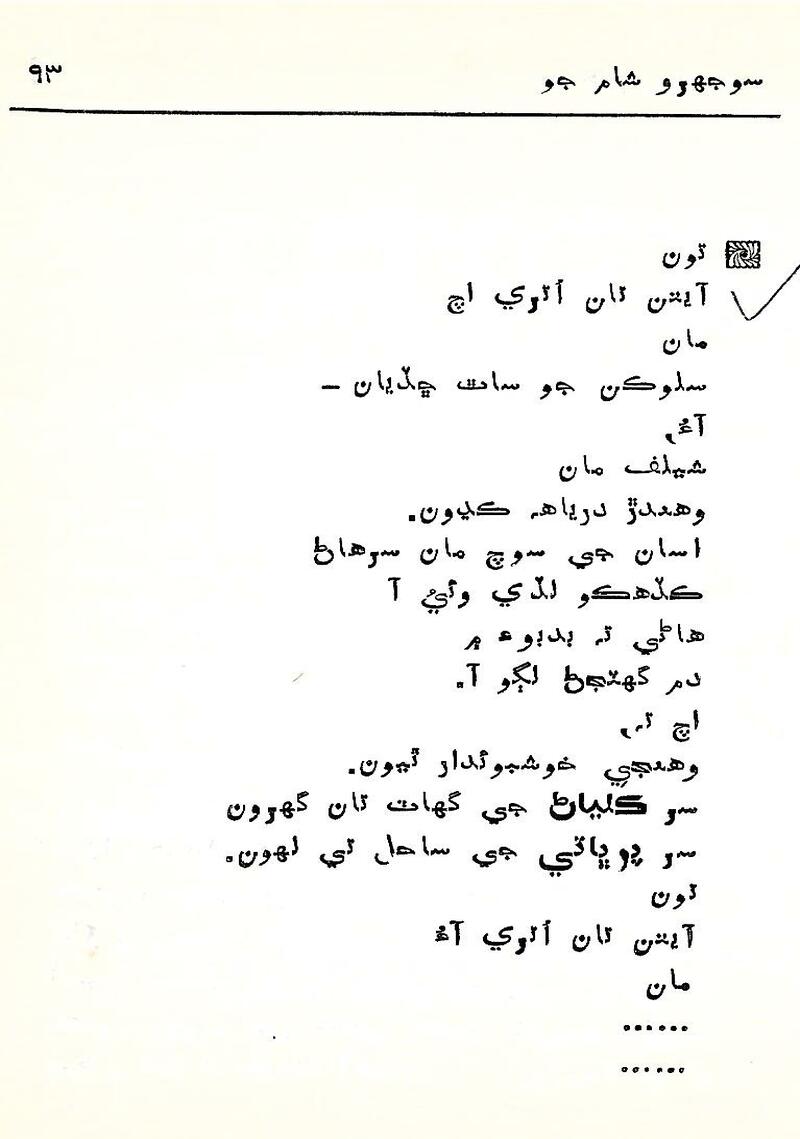 سوجهرو شام جو ۹۳
تون
آيتن تان اُتري اچ
مان
سلوڪن جو ساٿ ڇڏيان –
آءٌ،
شيلف مان
وهندڙ درياهه ڪڍون.
اسان جي سوچ مان سرهاڻ
ڪڏهڪو لڏي وئيُ آ
هاڻي ته بدبوءِ ۾
دم گهٽجڻ لڳو آ.
اچ ته،
وهنجي خوشبوئدار ٿيون.
سر ڪلياڻ جي گهاٽ تان گهڙون
سر پورٻي جي ساحل تي لهون.
تون
آيتن تان اُتري آءُ
مان
......
......